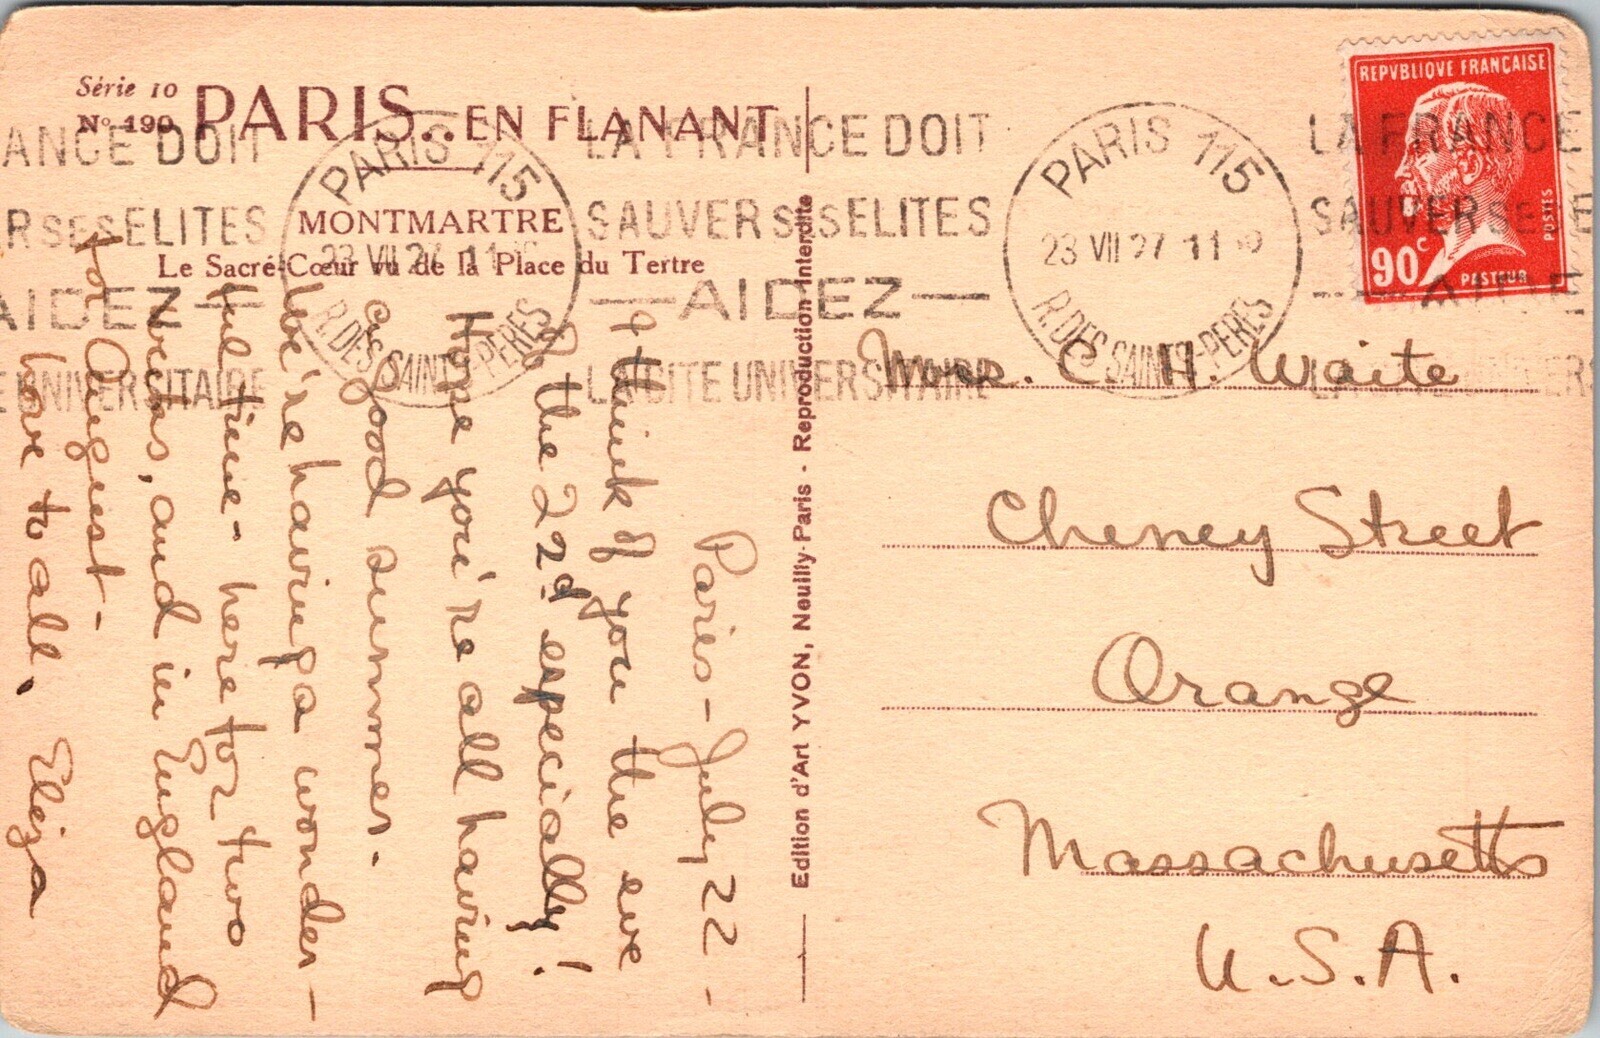 Série 10
Nº 190
PARIS.. EN FLANANT
MONTMARTRE
Le Sacré-Cœur vu de la Place du Tertre
ANCE DOIT
R SES ELITES
AIDEZ
E UNIVERSITAIRE
PARIS 115
23 VII 27 11
R. DES SAINTS-PERES
LA FRANCE DOIT
SAUVER SES ELITES
— AIDEZ —
LA CITE UNIVERSITAIRE
PARIS 115
23 VII 27 11
R. DES SAINTS-PERES
LA FRANCE
SAUVER SES E
REPVBLIQVE FRANÇAISE
POSTES
90c
PASTEUR
Paris - July 22 -
I think of you the eve
of the 22d especially!
Hope you're all having
a good summer.
We're having a wonder-
ful time - here for two
weeks, and in England
for August -
Love to all. Eliza
Edition d'Art YVON, Neuilly-Paris - Reproduction Interdite
Mrs. C. H. Waite
Cheney Street
Orange
Massachusetts
U.S.A.